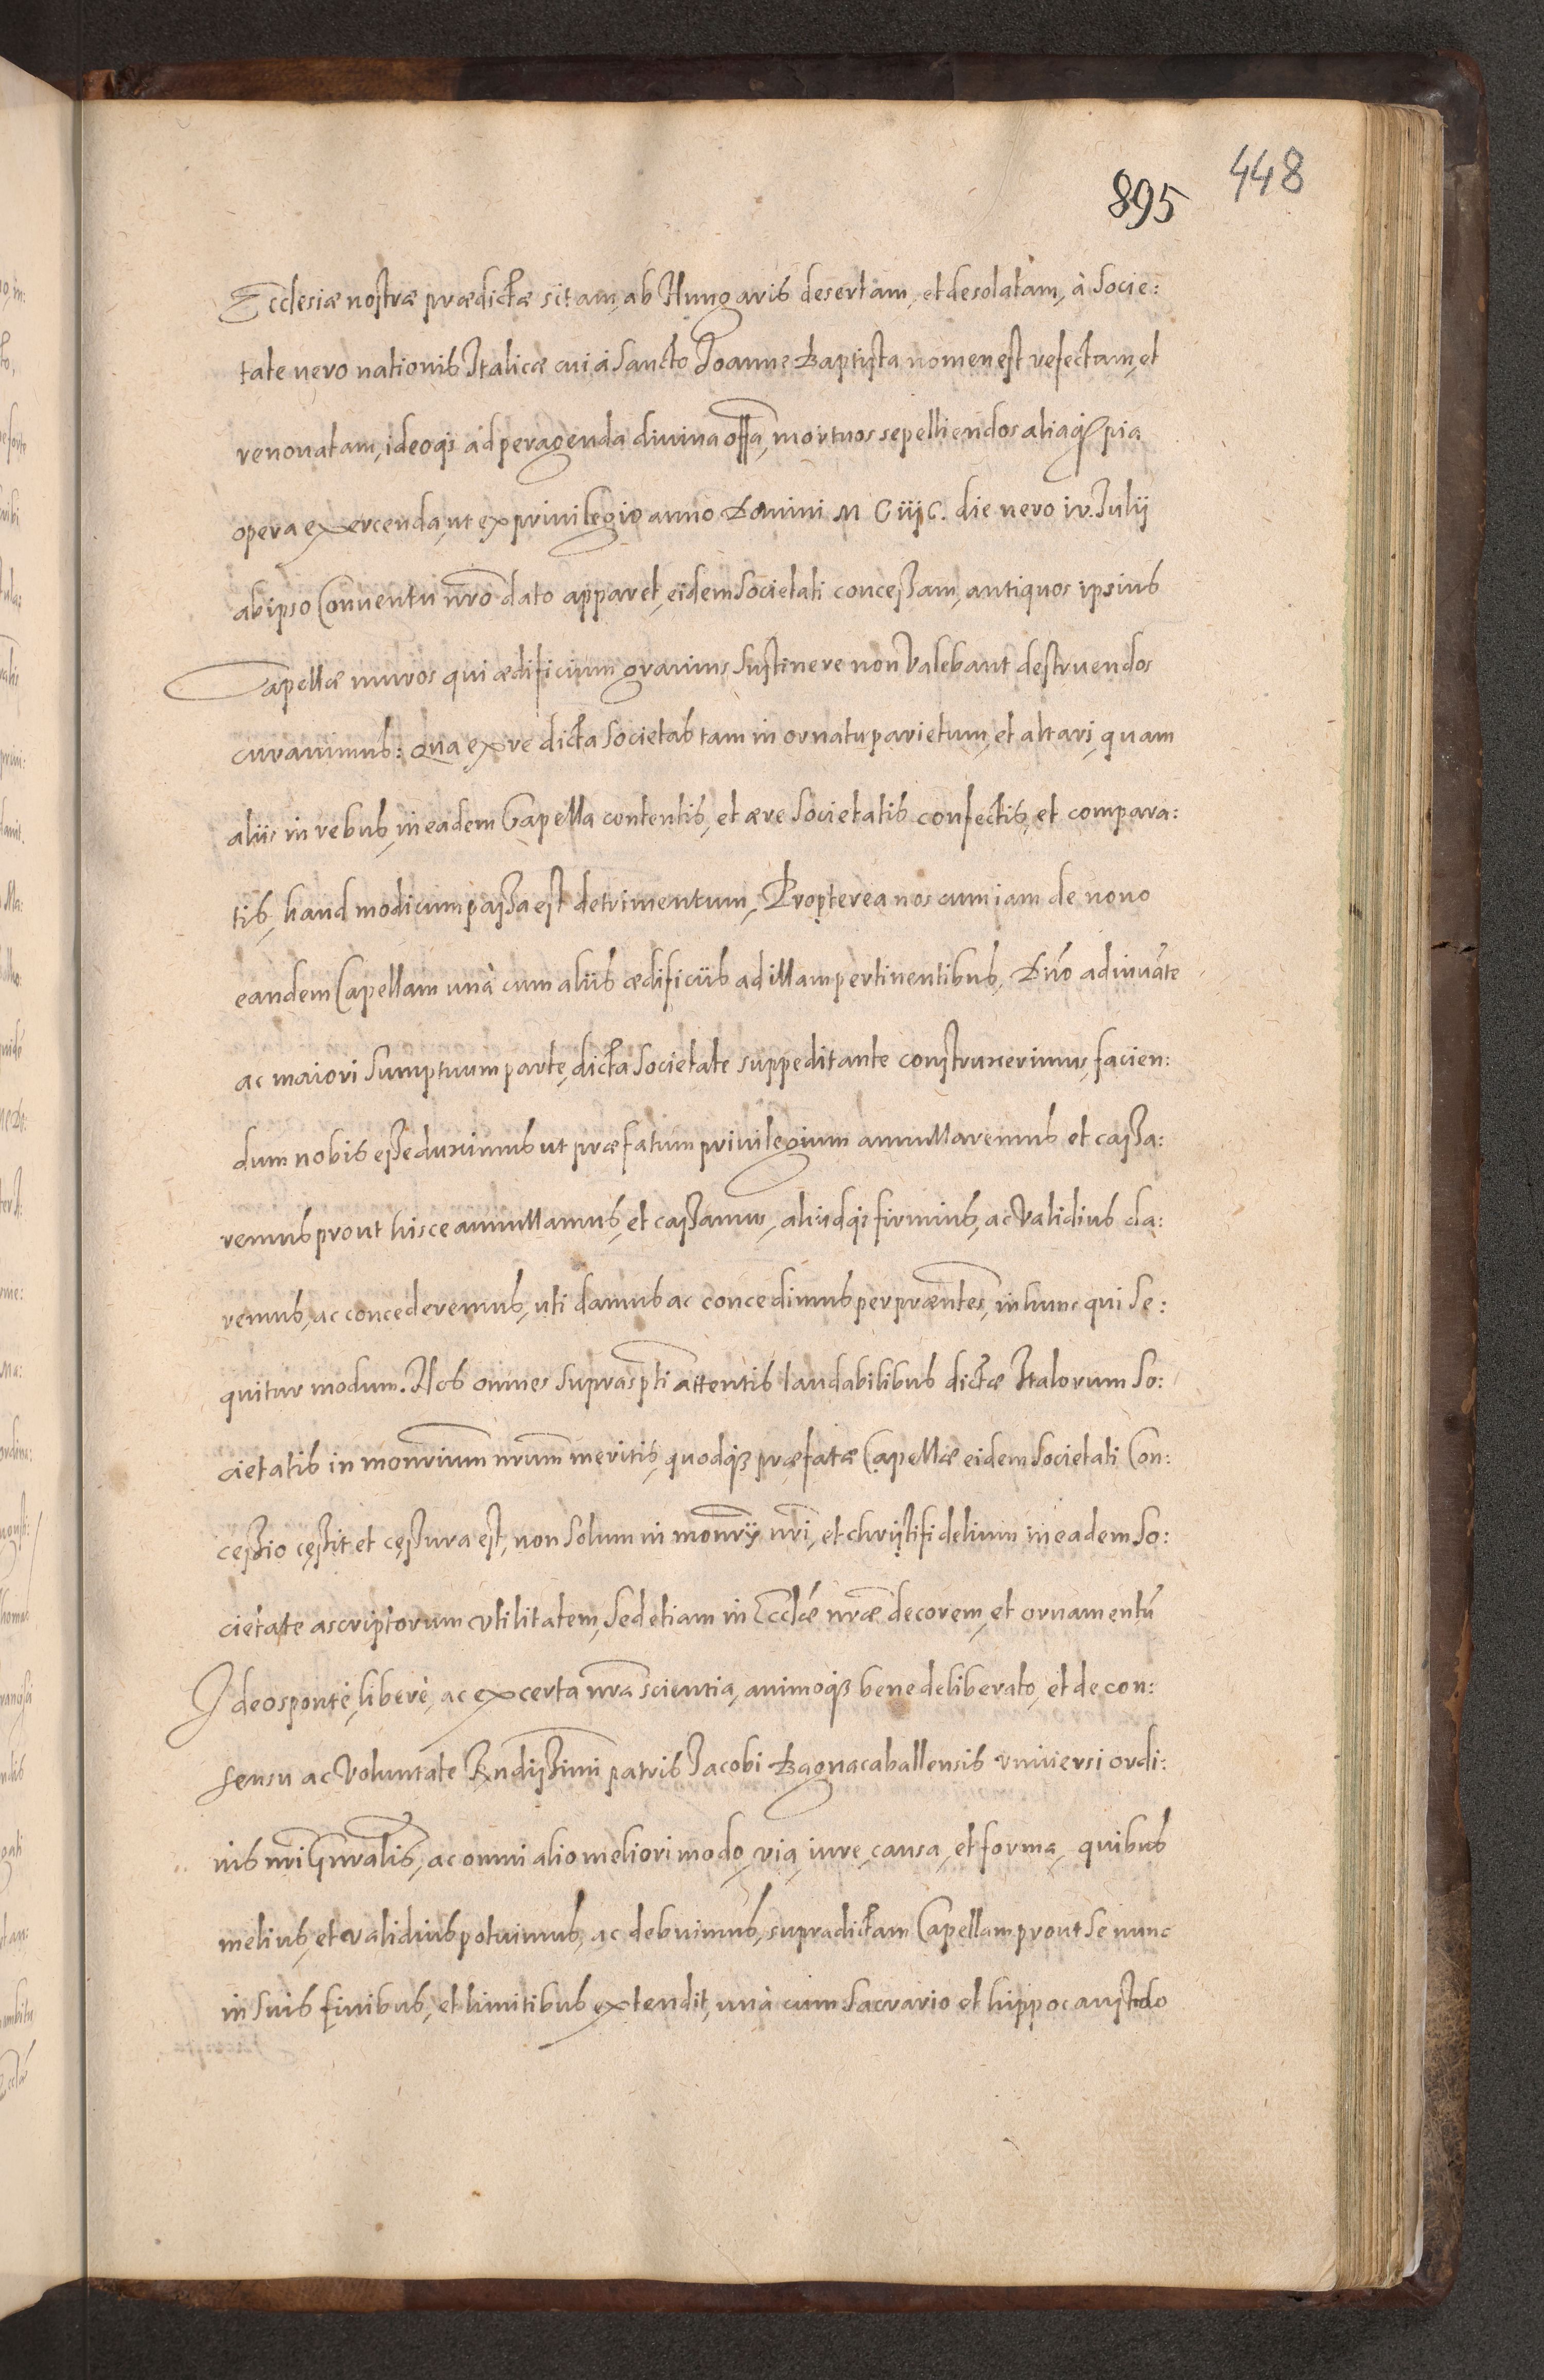 448
895
Ecclesiæ nostræ prædictæ sitam, ab Hungaris desertam, et desolatam, à Socie:
tate uero nationis Italicæ cui à Sancto Joanne Baptista nomen est refectam, et
renouatam, ideoq3 ad peragenda diuina offa, mortuos sepelliendos aliaq3 pia
opera exercenda, ut ex priuilegio anno Domini M C iij C. die uero iv. Julij
ab ipso Conuentu nr̃o dato apparet, eidem Societati conceßam, antiquos ipsius
Capellæ muros qui ædificium grauius Sustinere non Valebant destruendos
curauimus: Qua ex re dicta Societas tam in ornatu parietum, et altari, quam
aliis in rebus, in eadem Capella contentis, et ære Societatis confectis, et compara:
tis, haud modicum paßa est detrimentum, Propterea nos cum iam de nouo
eandem Capellam unà cum aliis ædificiis ad illam pertinentibus, Dño adiuuãte
ac maiori Sumptuum parte, dicta Societate suppeditante construxerimus, facien:
dum nobis eße duximus ut præfatum priuilegium annullaremus et caßa:
remus prout hisce annullamus, et caßamus, aliudq3 firmius, ac Validius da:
remus, ac concederemus, uti damus ac concedimus per præntes, in hunc qui Se:
quitur modum. Nos omnes Supraspti attentis laudabilibus dictæ Italorum So:
cietatis in monrium nrum meritis, quodq3 præfatæ Capellæ eidem Societati Con:
ceßio ceßit et ceßura est, non Solum in monrij nri, et christifidelium in eadem So:
cietate ascriptorum vtilitatem, Sed etiam in Eccl̃æ nræ decorem, et ornamentũ
Ideo spontè, liberè, ac ex certa nra scientia, animoq3 bene deliberato, et de con:
sensu ac Voluntate Rndißimi patris Jacobi Bagnacaballensis vniuersi ordi:
nis nri Gnralis, ac omni alio meliori modo, via, iure, causa, et forma, quibus
melius, et validius potuimus, ac debuimus, supradictam Capellam prout Se nunc
in Suis finibus, et limitibus extendit, unà cum Sacrario et hippocaustdo